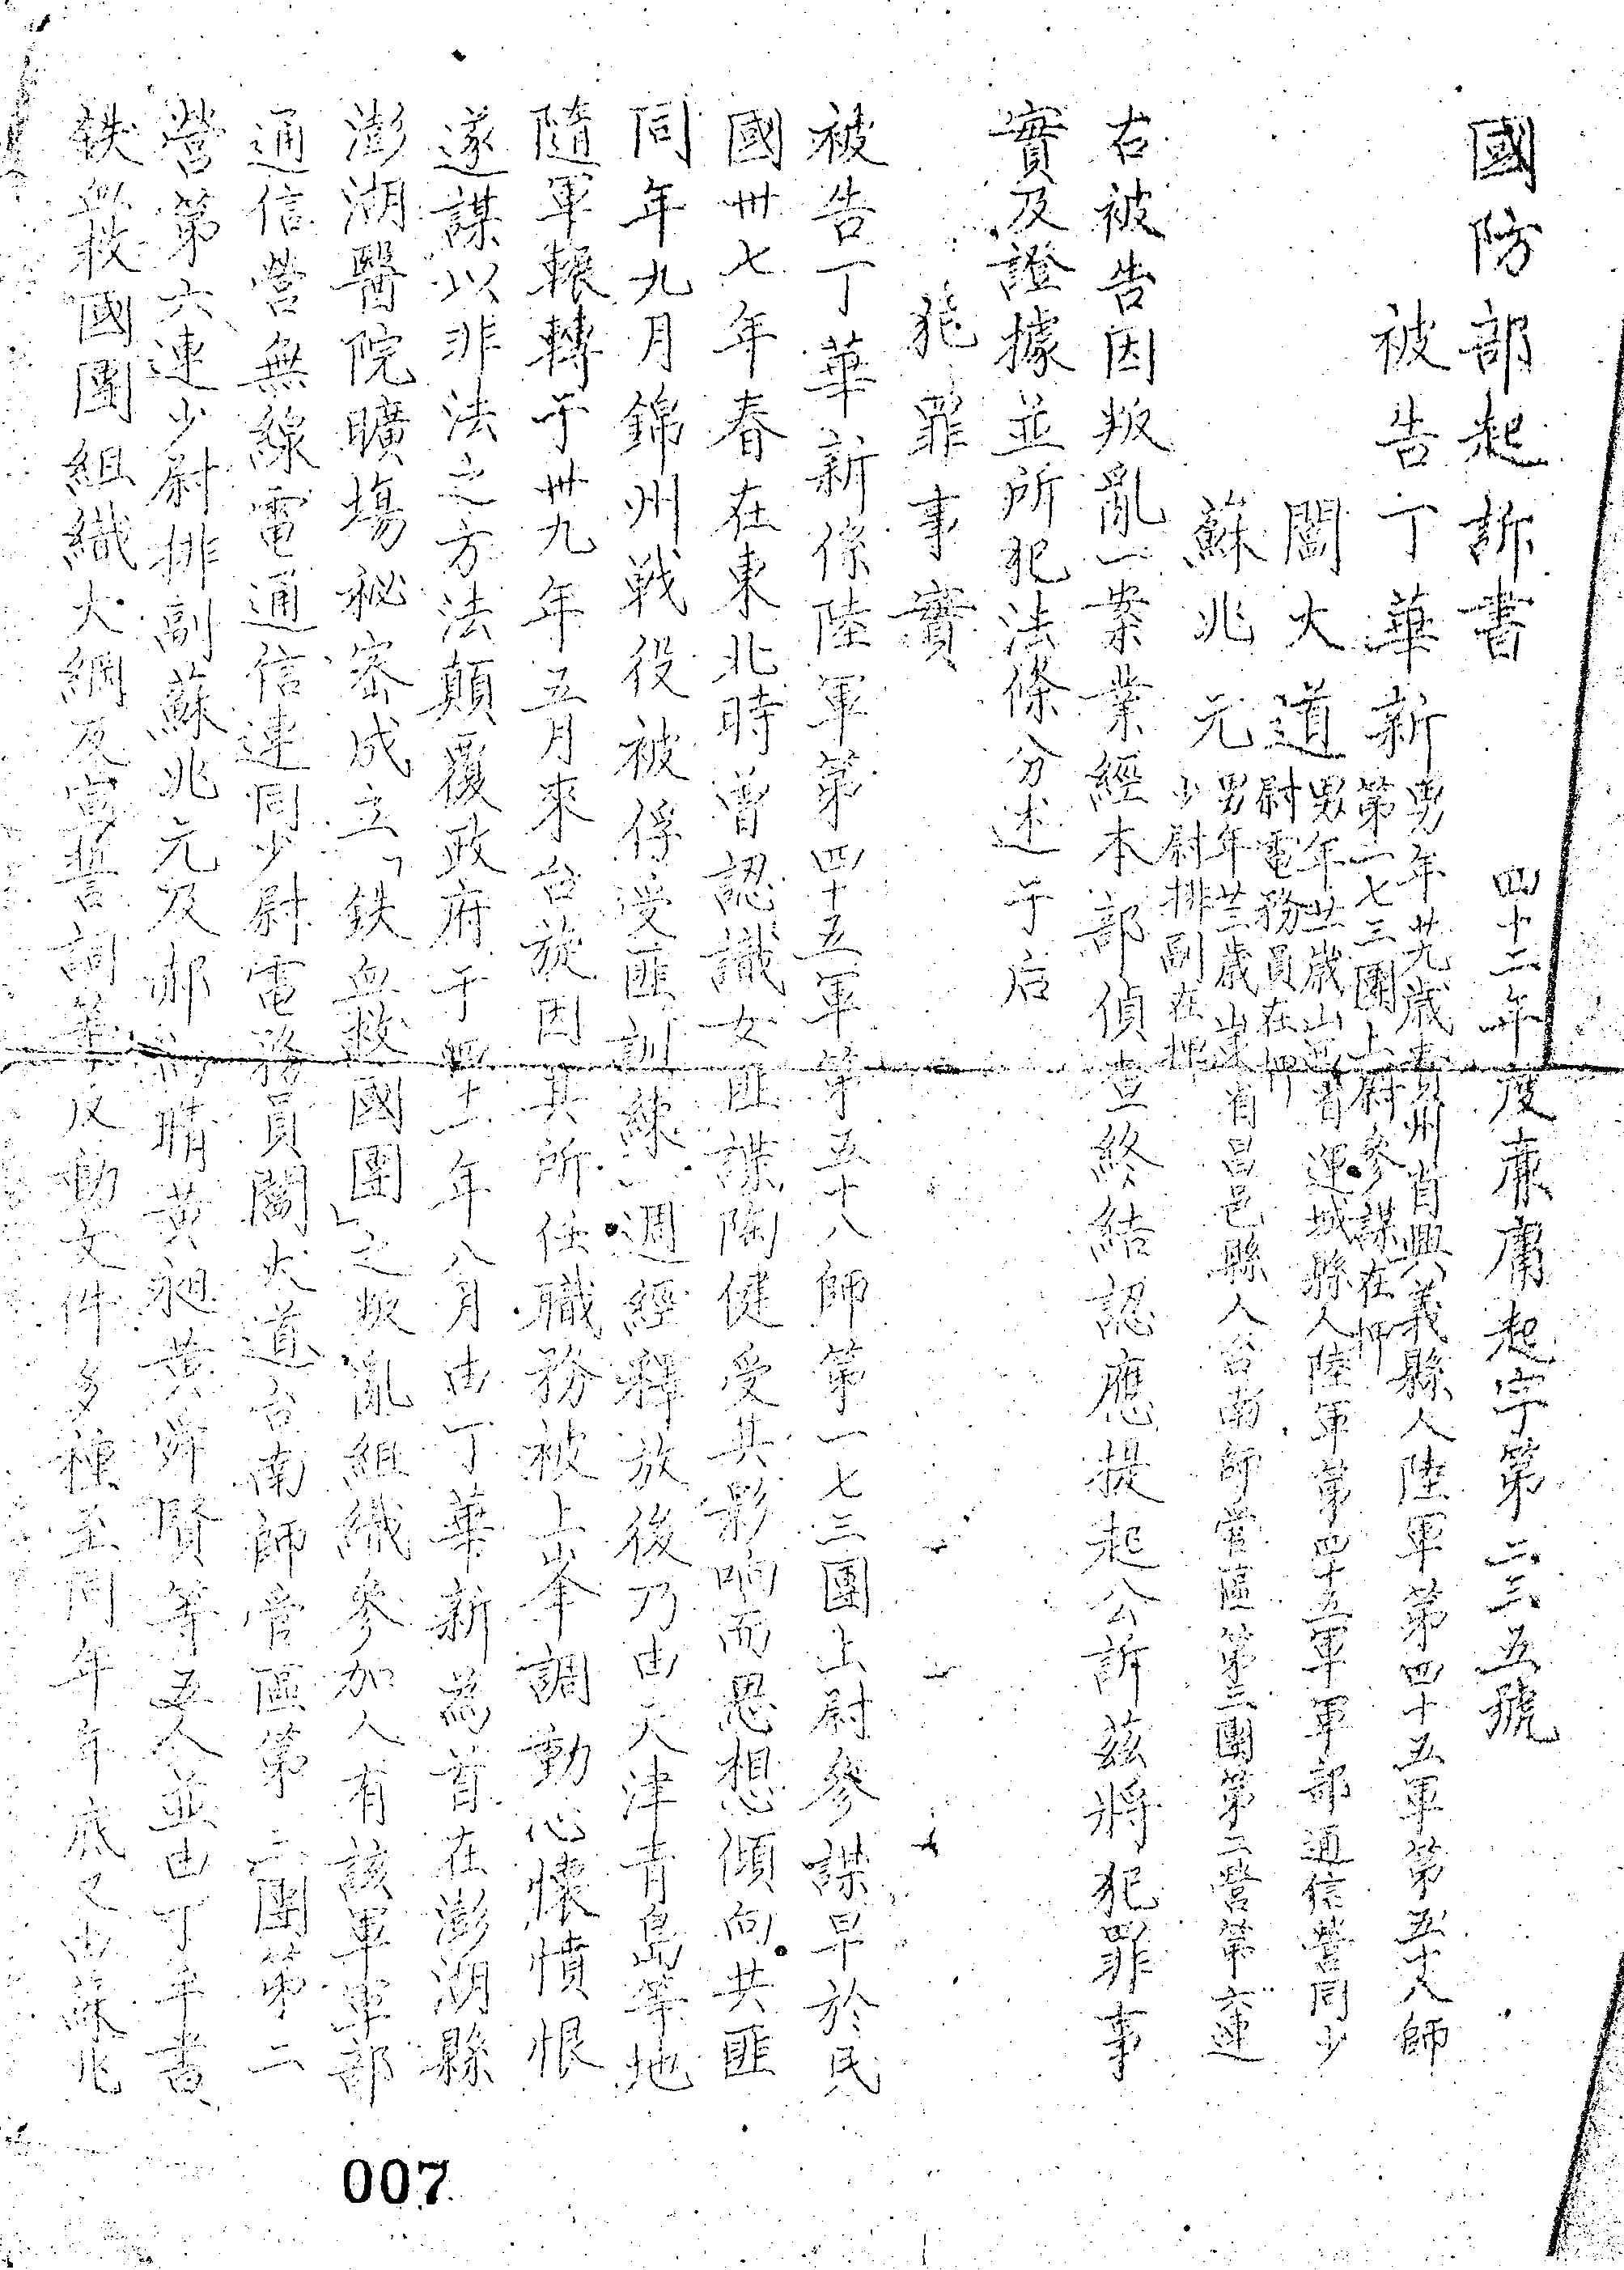 國防部起訴書　四十二年度廉庸起字第二三五號
被告丁華新　男年廿九歲貴州省興義縣人陸軍第四十五軍第五十八師
第一七三團上尉參謀在押
閻大道　男年卅歲山西省運城縣人陸軍第四十五軍軍部通信營同少
尉電務員在押
蘇兆元　男年廿三歲山東省昌邑縣人台南師管區第三團第二營第六連
少尉排副在押
右被告因叛亂一案業經本部偵查終結認應提起公訴茲將犯罪事
實及證據並所犯法條分述于后
犯罪事實
被告丁華新係陸軍第四十五軍第五十八師第一七三團上尉參謀早於民
國卅七年春在東北時曾認識女匪諜陶健受其影响而思想傾向共匪
同年九月錦州戰役被俘受匪訓練一週經釋放後乃由天津青島等地
隨軍輾轉于卅九年五月來台旋因其所任職務被上峯調動心懷憤恨
遂謀以非法之方法顛覆政府于四十一年八月由丁華新為首在澎湖縣
澎湖醫院曠場秘密成立「鉄血救國團」之叛亂組織參加人有該軍軍部
通信營無線電通信連同少尉電務員閻大道台南師管區第三團第二
營第六連少尉排副蘇兆元及郝紹晴黃昶黃舜賢等五人並由丁手書
鉄血救國團組織大綱及宣誓詞等反動文件多種至同年年底又由蘇兆
007